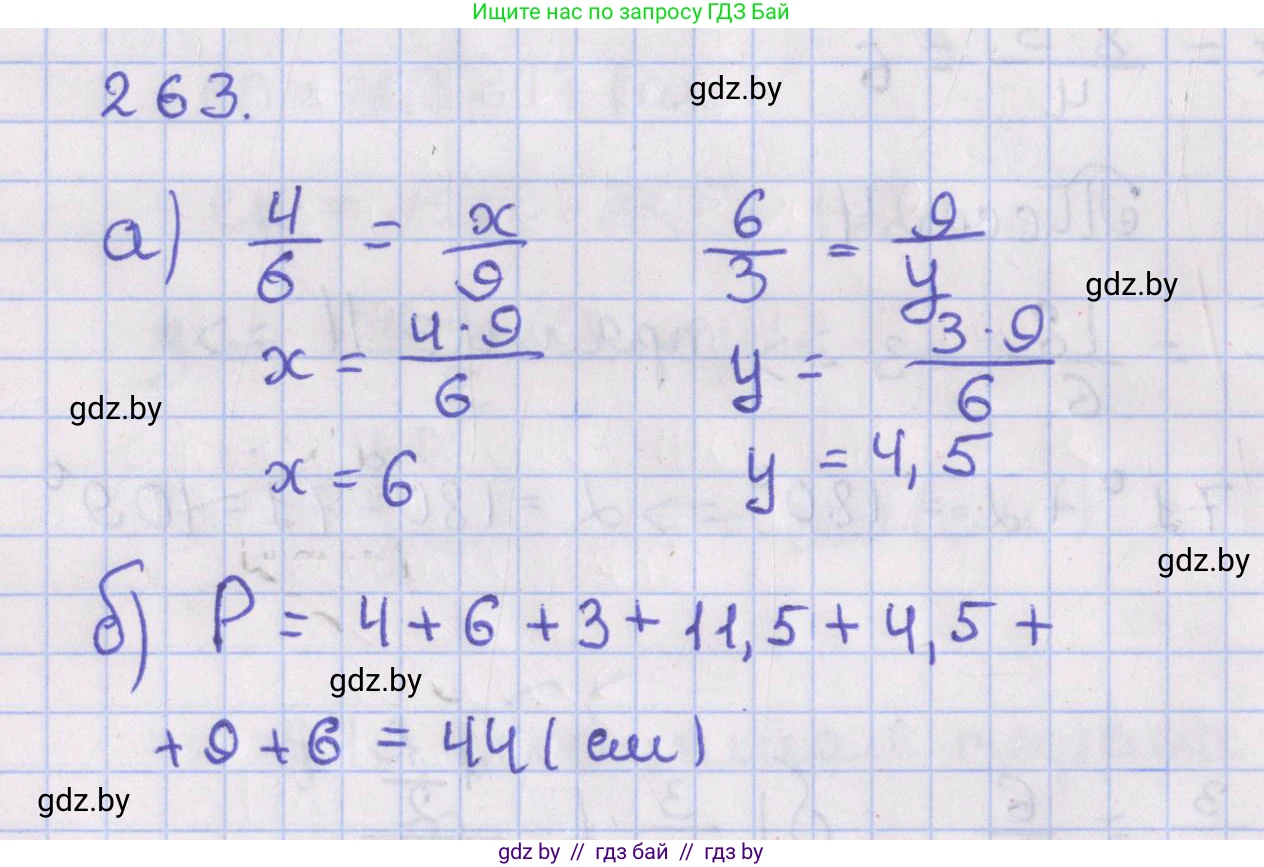 Ищите нас по запросу ГДЗ Бай
263.
gdz.by
а) 4/6 = x/9 6/3 = 9/y
gdz.by
x = 4·9/6 y = 3·9/6
gdz.by
x = 6 y = 4,5
gdz.by
б) P = 4 + 6 + 3 + 11,5 + 4,5 +
gdz.by
+ 9 + 6 = 44 (см)
gdz.by
gdz by // гдз бай // гдз by